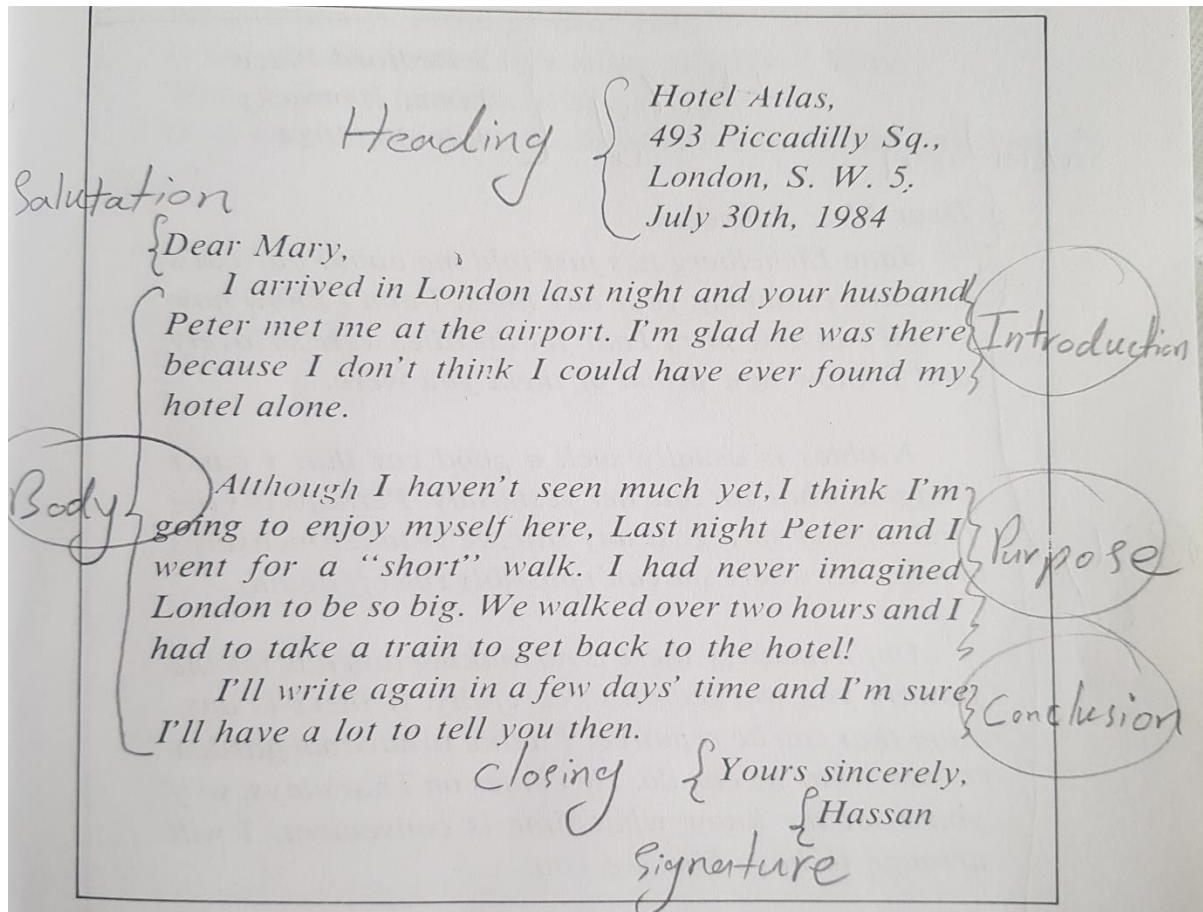 Heading
Hotel Atlas,
493 Piccadilly Sq.,
London, S. W. 5.
July 30th, 1984
Salutation
Dear Mary,
I arrived in London last night and your husband
Peter met me at the airport. I'm glad he was there
because I don't think I could have ever found my
hotel alone.
Introduction
Body
Although I haven't seen much yet, I think I'm
going to enjoy myself here, Last night Peter and I
went for a “short” walk. I had never imagined
London to be so big. We walked over two hours and I
had to take a train to get back to the hotel!
Purpose
I'll write again in a few days' time and I'm sure
I'll have a lot to tell you then.
Conclusion
Closing
Yours sincerely,
Hassan
Signature